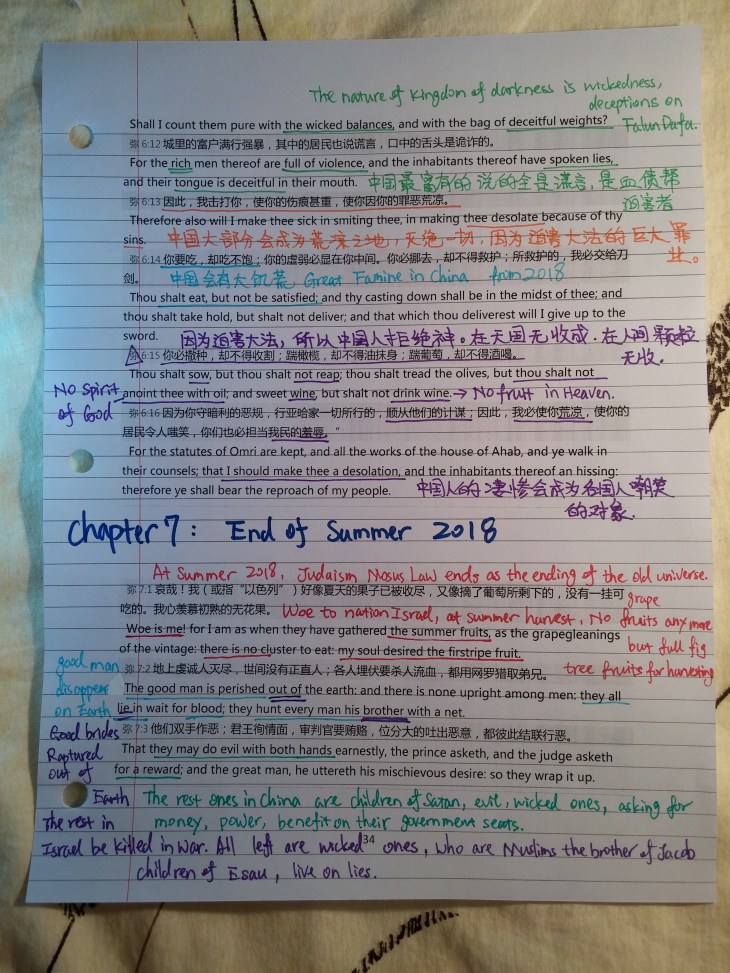 The nature of kingdom of darkness is wickedness,
deceptions on
Falun Dafa.
Shall I count them pure with the wicked balances, and with the bag of deceitful weights?
弥 6:12 城里的富户满行强暴，其中的居民也说谎言，口中的舌头是诡诈的。
For the rich men thereof are full of violence, and the inhabitants thereof have spoken lies,
and their tongue is deceitful in their mouth. 中国最富有的说的全是谎言，是血债帮
迫害者
弥 6:13 因此，我击打你，使你的伤痕甚重，使你因你的罪恶荒凉。
Therefore also will I make thee sick in smiting thee, in making thee desolate because of thy
sins. 中国大部分会成为荒凉之地，灭绝一切，因为迫害大法的巨大罪
业。
弥 6:14 你要吃，却吃不饱；你的虚弱必显在你中间。你必挪去，却不得救护；所救护的，我必交给刀
剑。 中国会有大饥荒 Great Famine in China from 2018
Thou shalt eat, but not be satisfied; and thy casting down shall be in the midst of thee; and
thou shalt take hold, but shalt not deliver; and that which thou deliverest will I give up to the
sword. 因为迫害大法，所以中国人拒绝神。在天国无收成。在人间颗粒
无收。
弥 6:15 你必撒种，却不得收割；踹橄榄，却不得油抹身；踹葡萄，却不得酒喝。
Thou shalt sow, but thou shalt not reap; thou shalt tread the olives, but thou shalt not
No spirit of God
anoint thee with oil; and sweet wine, but shalt not drink wine. → No fruit in Heaven.
弥 6:16 因为你守暗利的恶规，行亚哈家一切所行的，顺从他们的计谋；因此，我必使你荒凉，使你的
居民令人嗤笑，你们也必担当我民的羞辱。”
For the statutes of Omri are kept, and all the works of the house of Ahab, and ye walk in
their counsels; that I should make thee a desolation, and the inhabitants thereof an hissing:
therefore ye shall bear the reproach of my people. 中国人的凄惨会成为各国人嘲笑
的对象。
Chapter 7: End of Summer 2018
At Summer 2018, Judaism Mosus Law ends as the ending of the old universe.
弥 7:1 哀哉！我（或指“以色列”）好像夏天的果子已被收尽，又像摘了葡萄所剩下的，没有一挂可
grape
吃的。我心羡慕初熟的无花果。 Woe to nation Israel, at summer harvest, No fruits any more
Woe is me! for I am as when they have gathered the summer fruits, as the grapegleanings
but full fig
of the vintage: there is no cluster to eat: my soul desired the firstripe fruit.
tree fruits for harvesting
good man disappear on Earth
弥 7:2 地上虔诚人灭尽，世间没有正直人；各人埋伏要杀人流血，都用网罗猎取弟兄。
The good man is perished out of the earth: and there is none upright among men: they all
lie in wait for blood; they hunt every man his brother with a net.
Good brides Raptured out of Earth
弥 7:3 他们双手作恶；君王徇情面，审判官要贿赂，位分大的吐出恶意，都彼此结联行恶。
That they may do evil with both hands earnestly, the prince asketh, and the judge asketh
for a reward; and the great man, he uttereth his mischievous desire: so they wrap it up.
The rest ones in China are children of Satan, evil, wicked ones, asking for
money, power, benefit on their government seats.
The rest in
Israel be killed in war. All left are wicked ones, who are Muslims the brother of Jacob
34
children of Esau, live on lies.